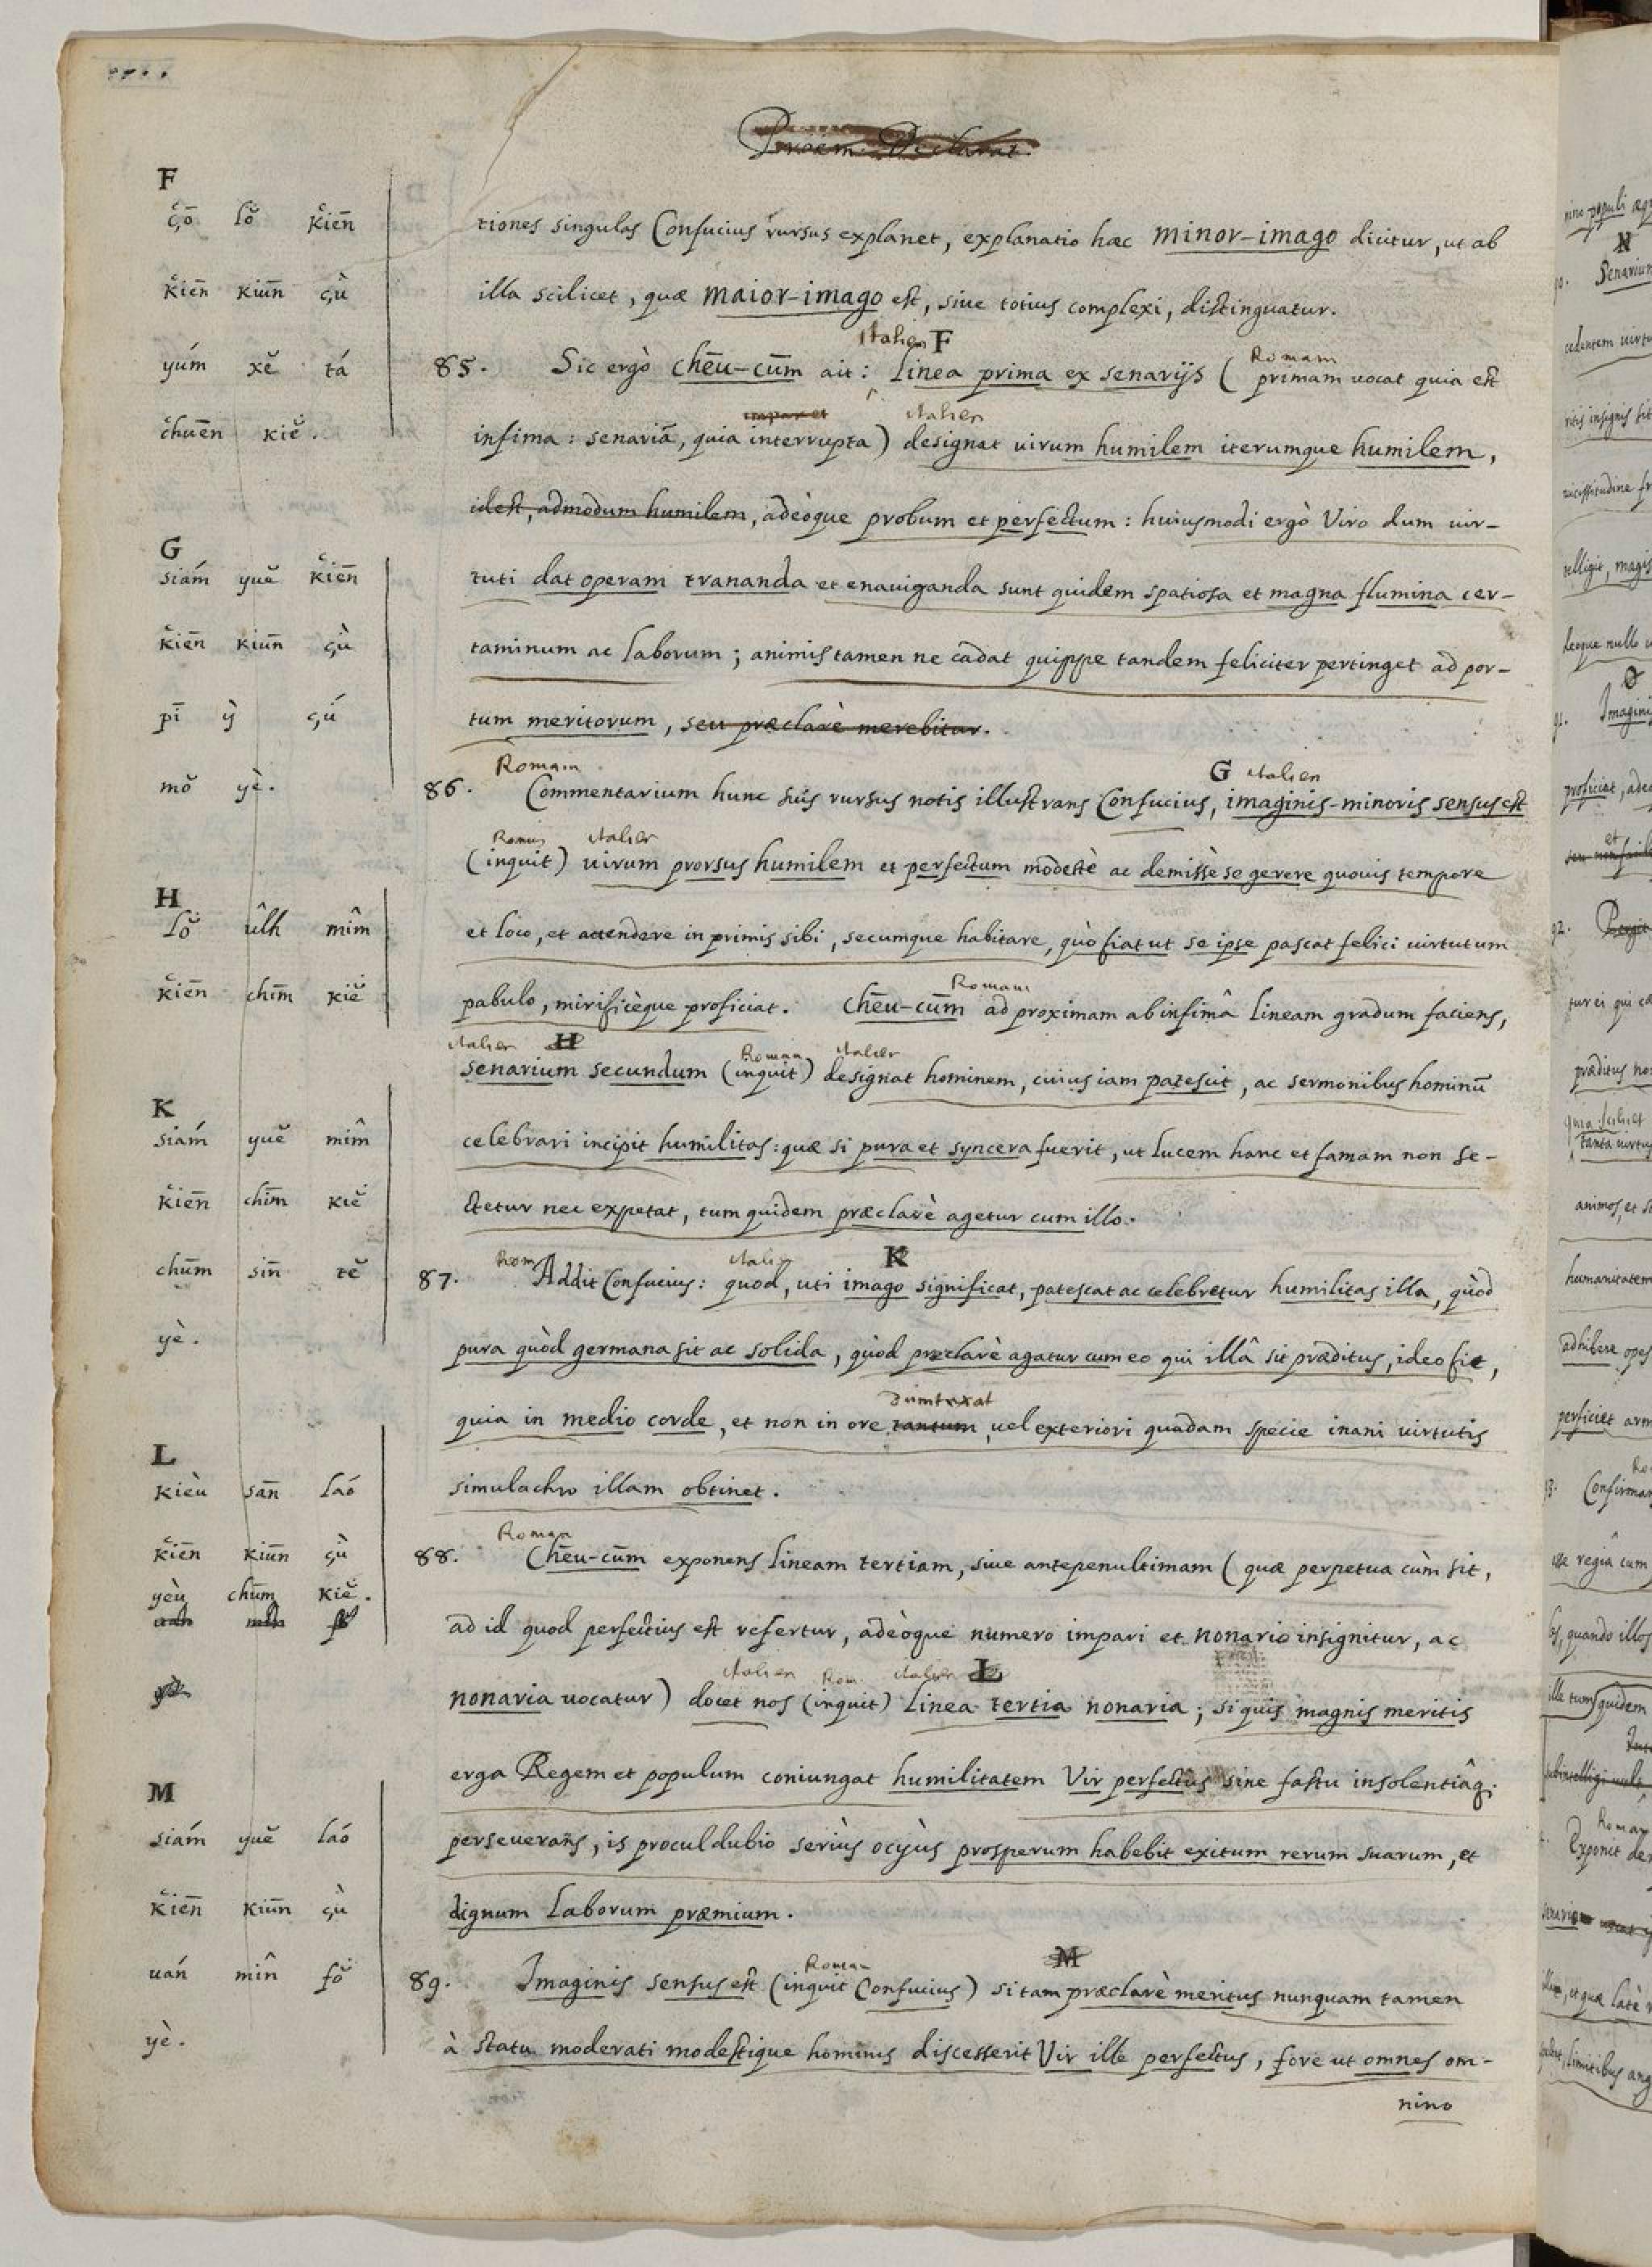 Proëm. Declarat.
F
çō lŏ kʿiēn
kʿiēn kiūn çù
yúm xĕ tá
chʿuēn kiĕ.
tiones singulas Confucius rursus explanet, explanatio hæc minor-imago dicitur, ut ab
illa scilicet, quæ maior-imago est, siue totius complexi, distinguatur.
Italien F Romain
85. Sic ergò chēu-cūm ait: Linea prima ex senarijs ( primam uocat quia est
impar et italien
infima: senariã, quia interrupta) designat uirum humilem iterumque humilem,
idest, admodum humilem, adeòque probum et perfectum: huiusmodi ergò Viro dum uir-
G
siám yuĕ kʿiēn
kʿiēn kiūn çù
pī ỳ çú
mŏ yè.
tuti dat operam trananda et enauiganda sunt quidem spatiosa et magna flumina cer-
taminum ac laborum; animis tamen ne cadat quippe tandem feliciter pertinget ad por-
tum meritorum, seu præclarè merebitur.
Romain G italien
86. Commentarium hunc suis rursus notis illustrans Confucius, imaginis-minoris sensus est
Romain italien
(inquit) uirum prorsus humilem et perfectum modestè ac demissè se gerere quouis tempore
H
lŏ úlh mîm
kʿiēn chīm kiĕ
et loco, et attendere in primis sibi, secumque habitare, quò fiat ut se ipse pascat felici uirtutum
Romain
pabulo, mirificèque proficiat. chēu-cūm ad proximam ab infimâ lineam gradum faciens,
italien H Roman italien
senarium secundum (inquit) designat hominem, cuius iam patescit, ac sermonibus hominũ
K
siám yuĕ mîm
kʿiēn chīm kiĕ
chūm sīn tĕ
yè.
celebrari incipit humilitas: quæ si pura et syncera fuerit, ut lucem hanc et famam non se-
ctetur nec expetat, tum quidem præclarè agetur cum illo.
Rom italien K
87. Addit Confucius: quod, uti imago significat, patescat ac celebretur humilitas illa, quòd
pura quòd germana sit ac solida, quòd præclarè agatur cum eo qui illâ sit præditus, ideo fit,
dumtaxat
quia in medio corde, et non in ore tantum, uel exteriori quadam specie inani uirtutis
simulachro illam obtinet.
L
kièu sān laó
kʿiēn kiūn çù
yèu chūm kiĕ.
Roman
88. Chēu-cūm exponens lineam tertiam, siue antepenultimam ( quæ perpetua cùm sit,
ad id quod perfectius est refertur, adeòque numero impari et nonario insignitur, ac
italien Rom. italien L
nonaria uocatur) docet nos (inquit) linea tertia nonaria; si quis magnis meritis
erga Regem et populum coniungat humilitatem Vir perfectus sine fastu insolentiâq;
M
siám yuĕ laó
kʿiēn kiūn çù
uán mîn fŏ
yè.
perseuerans, is proculdubio seriùs ocyùs prosperum habebit exitum rerum suarum, et
dignum laborum præmium.
Roman M
89. Imaginis sensus est (inquit Confucius) si tam præclarè meritus nunquam tamen
à statu moderati modestique hominis discesserit Vir ille perfectus, fore ut omnes om-
nino